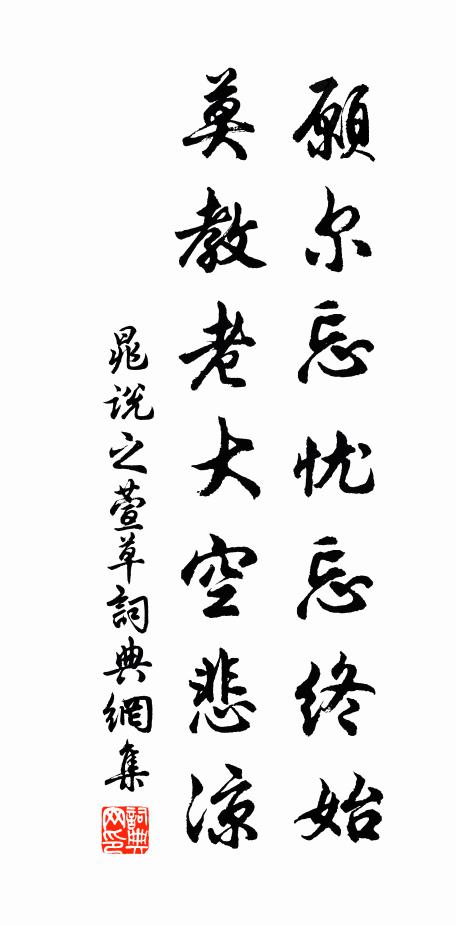 願尔忘忧忘终始
莫教老大空悲凉
晁说之萱草詞典網集
詞典网印